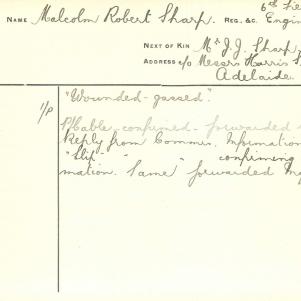 6th Fie
NAME Malcolm Robert Sharp. REG. &C. Engin
NEXT OF KIN Mr J.J. Sharp,
ADDRESS c/o Messrs Harris S
Adelaide.
"Wounded - gassed."
confirmed - forwarded
Reply from Commrs. Information
"Slip" " " confirming
mation. Same forwarded Mr